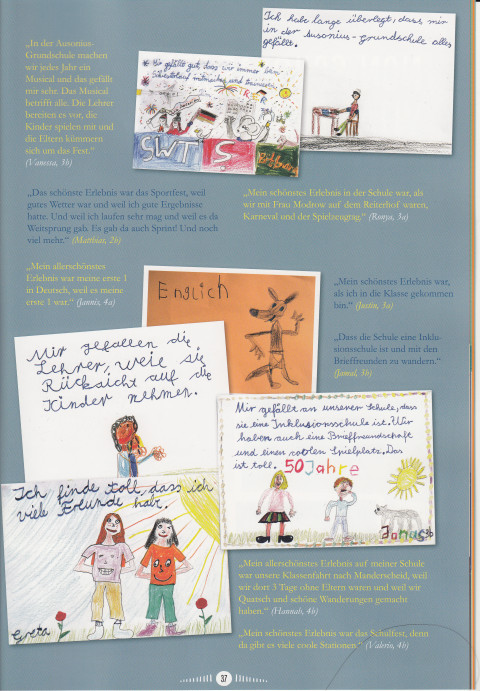 „In der Ausonius-
Grundschule machen
wir jedes Jahr ein
Musical und das gefällt
mir sehr. Das Musical
betrifft alle. Die Lehrer
bereiten es vor, die
Kinder spielen mit und
die Eltern kümmern
sich um das Fest.“
(Vanessa, 3b)
Mir gefällt gut, dass wir immer beim
Silvesterlauf mitmachen und trainieren.
SWT
S
Ich habe lange überlegt, dass mir
in der Ausonius-Grundschule alles
gefällt.
„Das schönste Erlebnis war das Sportfest, weil
gutes Wetter war und weil ich gute Ergebnisse
hatte. Und weil ich laufen sehr mag und weil es da
Weitsprung gab. Es gab da auch Sprint! Und noch
viel mehr.“ (Matthias, 2b)
„Mein schönstes Erlebnis in der Schule war, als
wir mit Frau Modrow auf dem Reiterhof waren,
Karneval und der Spielzeugtag.“ (Ronya, 3a)
„Mein allerschönstes
Erlebnis war meine erste 1
in Deutsch, weil es meine
erste 1 war.“ (Jannis, 4a)
Englich
„Mein schönstes Erlebnis war,
als ich in die Klasse gekommen
bin.“ (Justin, 3a)
„Dass die Schule eine Inklu-
sionsschule ist und mit den
Brieffreunden zu wandern.“
(Jamal, 3b)
Mir gefallen die
Lehrer, weil sie
Rücksicht auf die
Kinder nehmen.
Mir gefällt an unserer Schule, dass
sie eine Inklusionsschule ist. Wir
haben auch eine Brieffreundschaft
und einen coolen Spielplatz. Das
ist toll. 50 Jahre
Jonas 3b
Ich finde toll, dass ich
viele Freunde hab.
Greta
„Mein allerschönstes Erlebnis auf meiner Schule
war unsere Klassenfahrt nach Manderscheid, weil
wir dort 3 Tage ohne Eltern waren und weil wir
Quatsch und schöne Wanderungen gemacht
haben.“ (Hannah, 4b)
„Mein schönstes Erlebnis war das Schulfest, denn
da gibt es viele coole Stationen“ (Valerio, 4b)
37